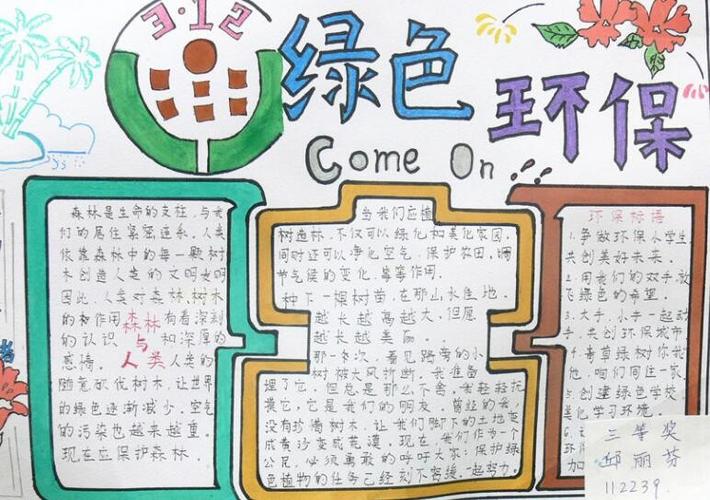 3·12
绿色
环保
Come On!!!
森林是生命的支柱,与我
们的居住紧密连系。人类
依靠森林中的每一颗树
木创造人类的文明
因此,人类对森林.树木
的和作用 森林 有着深刻
的认识 与 和深厚的
感情。 人类 人类的
随意砍伐树木,让世界
的绿色逐渐减少。空气
的污染也越来越重。
现在应保护森林。
当我们应植
树造林.不仅可以绿化和美化家园,
同时还可以净化空气、保护农田,调
节气候的变化.等等作用。
种下一棵树苗,在那山水佳地.
越长越高越大.但愿
越长越美丽...
那一次,看见路旁的小
树被大风折断,我准备
埋了它,但总是那么不舍,我轻轻抚
摸它,它是我们的朋友,曾经的我,
没有珍惜树木.让我们脚下的土地变
成黄沙变成荒漠。现在,我们作为一个
公民,必须勇敢的呼吁大家:保护绿
色植物的任务已经刻不容缓,一起努力。
环保标语
1.争做环保小学生
共创美好未来。
2.用我们的双手放
飞绿色的希望。
3.大手,小手一起动
手,共创环保城市
4.青草绿树你我
他,咱们同住一家
5.创建绿色学校
美化学习环境。
6.
环
加
三等奖
邱丽芬
112239.